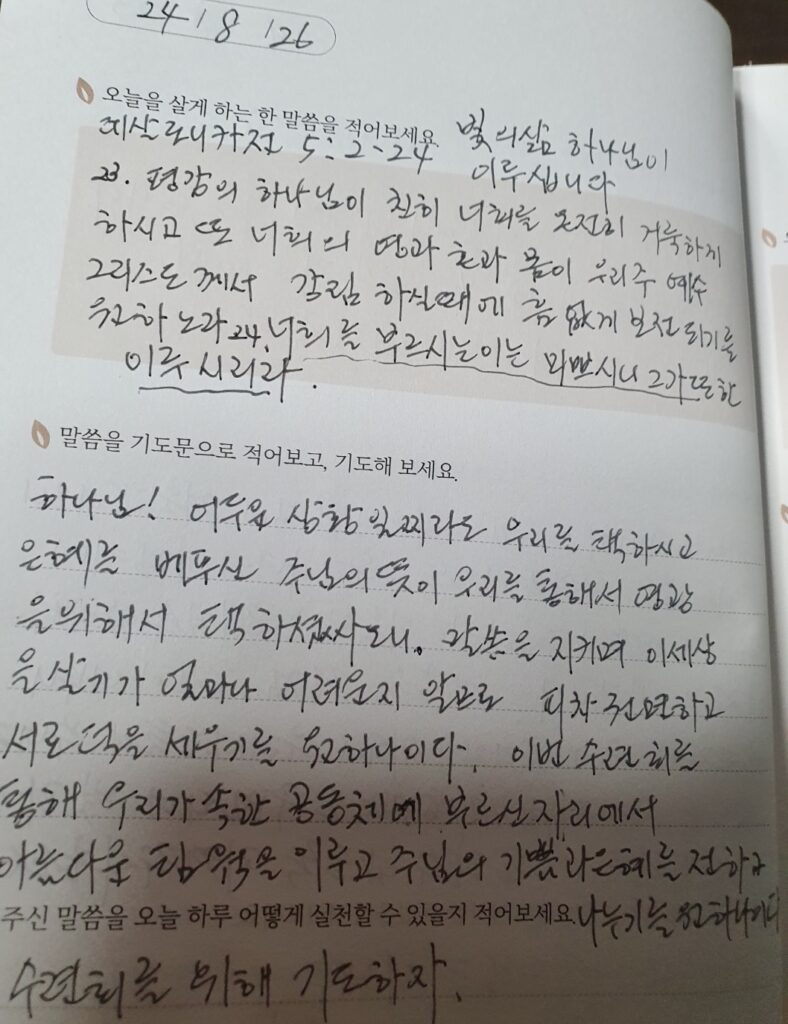 24 / 8 / 26
오늘을 살게 하는 한 말씀을 적어보세요.
데살로니가전 5:2-24 빛의삶 하나님이
이루십니다
23. 평강의 하나님이 친히 너희를 온전히 거룩하게
하시고 또 너희의 영과 혼과 몸이 우리주 예수
그리스도께서 강림 하실때에 흠 없게 보전되기를
원하노라 24. 너희를 부르시는이는 미쁘시니 그가 또한
이루시리라.
말씀을 기도문으로 적어보고, 기도해 보세요.
하나님! 어두운 상황일찌라도 우리를 택하시고
은혜를 베푸신 주님의 뜻이 우리를 통해서 영광
을위해서 택하셨싸오니. 말씀을 지키며 이세상
을살기가 얼마나 어려운지 알므로 피차 권면하고
서로 덕을 세우기를 원하나이다. 이번 수련회를
통해 우리가 속한 공동체에 부르신자리에서
아름다운 팀웍을 이루고 주님의 기쁨과은혜를 전하고
주신 말씀을 오늘 하루 어떻게 실천할 수 있을지 적어보세요. 나누기를 원하나이다
수련회를 위해 기도하자.